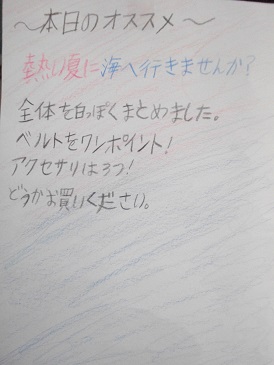 ～本日のオススメ～
熱い夏に海へ行きませんか？
全体を白っぽくまとめました。
ベルトをワンポイント！
アクセサリは3つ！
どうかお買いください。